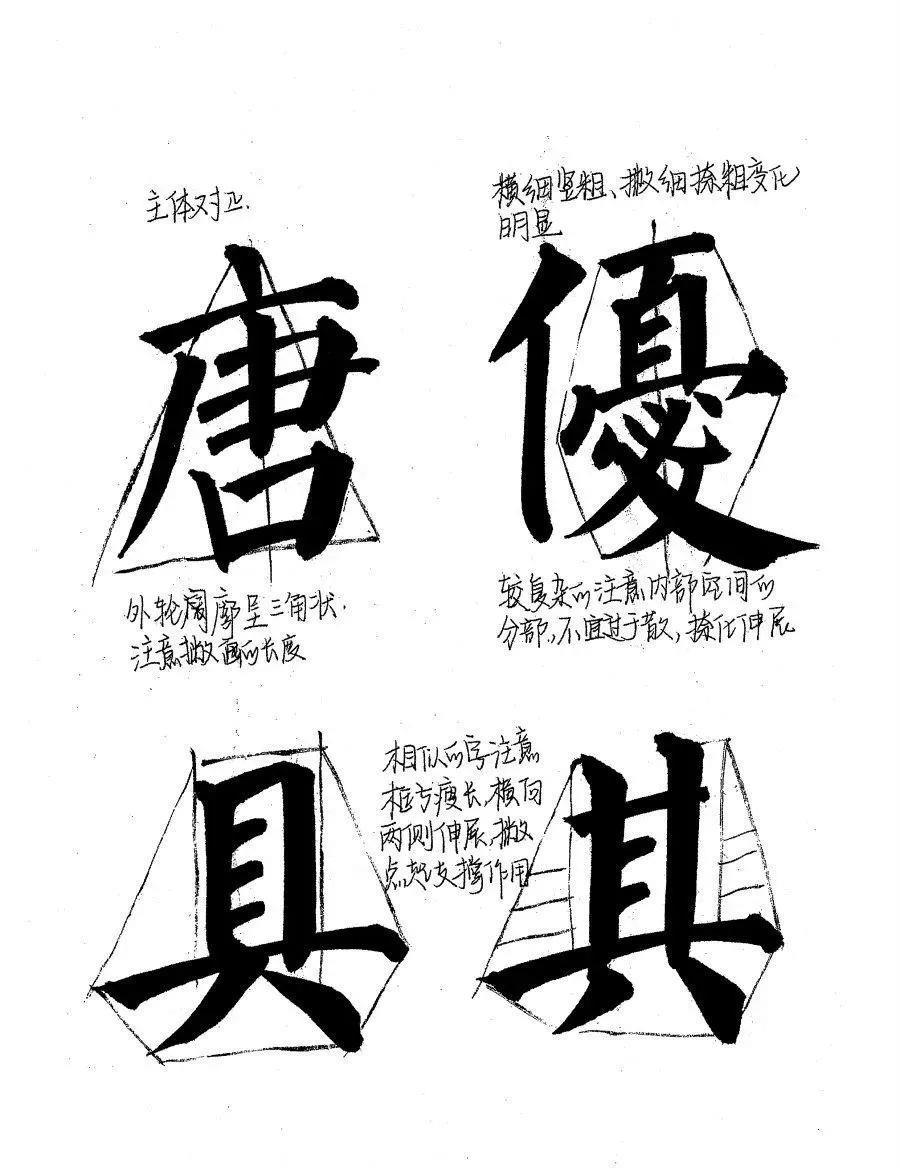 主体对正.
唐
外轮阔廓呈三角状.
注意撇画的长度
横细竖粗、撇细捺粗变化
明显
優
较复杂的注意内部空间的
分部,不宜过于散,捺化伸展
具
相似的字注意
框架瘦长,横向
两侧伸展,撇
点起支撑作用
其